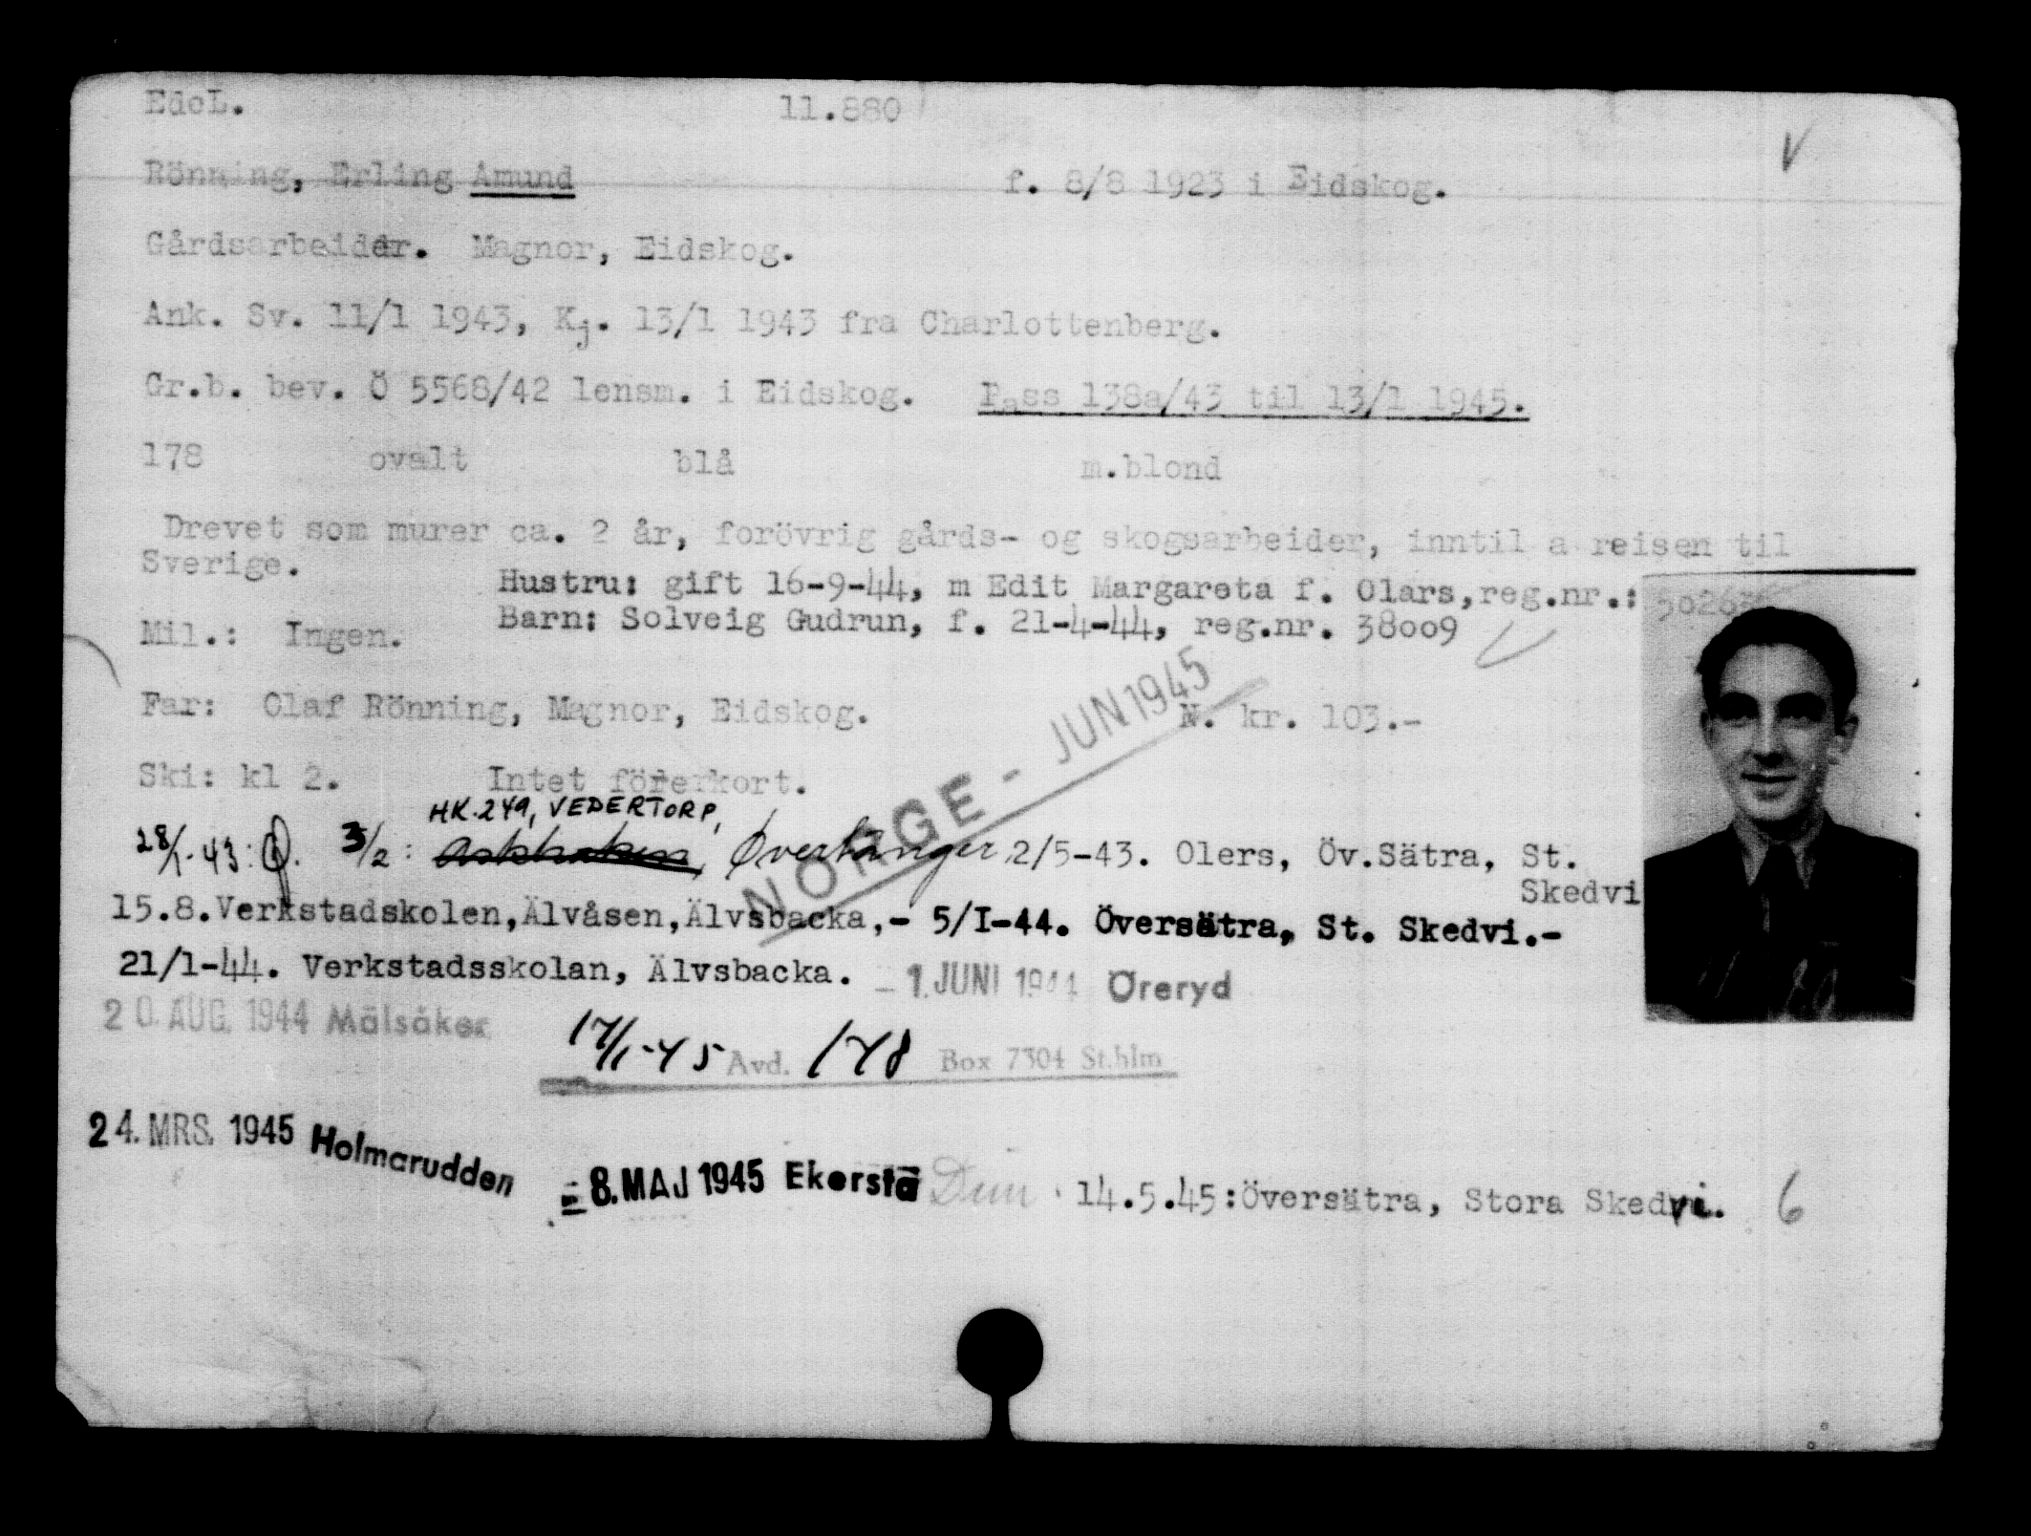 EdcL. 11.880
V
Rönning, Erling Amund f. 8/8 1923 i Eidskog.
Gårdsarbeider. Magnor, Eidskog.
Ank. Sv. 11/1 1943, Kj. 13/1 1943 fra Charlottenberg.
Gr.b. bev. Ö 5568/42 lensm. i Eidskog. Pass 138a/43 til 13/1 1945.
178 ovalt blå m.blond
Drevet som murer ca. 2 år, forövrig gårds- og skogsarbeider, inntil a reisen til
Sverige.
Hustru: gift 16-9-44, m Edit Margareta f. Olars, reg.nr.:
Barn: Solveig Gudrun, f. 21-4-44, reg.nr. 38009
Mil.: Ingen.
Far: Olaf Rönning, Magnor, Eidskog. N. kr. 103.-
NORGE - JUN 1945
Ski: kl 2. Intet förerkort.
HK.249, VEDERTORP,
28/1-43: 3/2: Øvertänger 2/5-43. Olers, Öv.Sätra, St.
Skedvi
15.8.Verkstadskolen,Älvåsen,Älvsbacka,- 5/I-44. Översätra, St. Skedvi.-
21/1-44. Verkstadsskolan, Älvsbacka. - 1. JUNI 1944 Øreryd
20. AUG. 1944 Mälsåker
17/1-45 Avd. 178 Box 7304 St.hlm
24. MRS. 1945 Holmarudden
- 8. MAJ 1945 Ekerstä Dim 14.5.45:Översätra, Stora Skedvi. 6